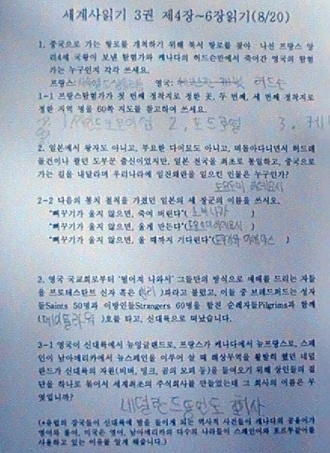 세계사읽기 3권 제4장~6장읽기(8/20)
1. 중국으로 가는 항로를 개척하기 위해 북서 항로를 찾아 나선 프랑스 앙
리4세 국왕이 보낸 탐험가와 캐나다의 허드슨만에서 죽어간 영국의 탐험
가는 누구인지 각각 쓰세요.
프랑스: 영국: 허드슨
1-1 프랑스탐험가가 첫 번째 정착지로 정한 곳, 두 번째, 세 번째 정착지로
정한 지역 명을 60쪽 지도를 참고하여 쓰세요.
2. 3.
2. 일본에서 왕자도 아니고, 부호한 다이묘도 아니고, 떠돌아다니면서 허드레
물건이나 팔던 도부꾼 출신이었지만, 일본 전국을 최초로 통일하고, 중국으로
가는 길을 내달라며 우리나라에 임진왜란을 일으킨 인물은 누구인가?
도요토미 히데요시
2-2 다음의 통치 철학을 가졌던 일본의 세 장군의 이름을 쓰시오.
"뻐꾸기가 울지 않으면, 죽여 버린다"( 오다 노부나가 )
"뻐꾸기가 울지 않으면, 울게 만든다"(도요토미 히데요시)
"뻐꾸기가 울지 않으면, 울 때까지 기다린다"(도쿠가와 이에야스 )
3. 영국 국교회로부터 '떨어져 나와서' 그들만의 방식으로 예배를 드리는 자들
을 프로테스탄트 신자 혹은 (분리)파라고 불렀고, 이들 중 브레드퍼드는 성자
들Saints 50명과 이방인들Strangers 60명을 합친 순례자들Pilgrims과 함께
(메이플라워 )호를 타고, 신대륙으로 떠났습니다.
3-1 영국이 신대륙에서 뉴잉글랜드로, 프랑스가 캐나다에서 뉴프랑스로, 스페
인이 남아메리카에서 뉴스페인을 이루어 살 때 해상무역을 활발히 했던 네덜
란드가 신대륙의 자원(비버, 밍크, 곰의 모피 등)을 들여오기 위해 상인들의 집
단을 하나로 묶어서 세계최초의 주식회사를 만들었는데 그 회사의 이름은 무
엇입니까?
네덜란드동인도 회사
(*유럽의 강국들이 신대륙에 발을 들이게 되는 역사적 사건들이 캐나다의 공용어가
영어와 불어, 미국은 영어, 남아메리카의 다수의 나라들이 스페인어와 포르투갈어를
사용하고 있는 이유를 알게 해줍니다.)